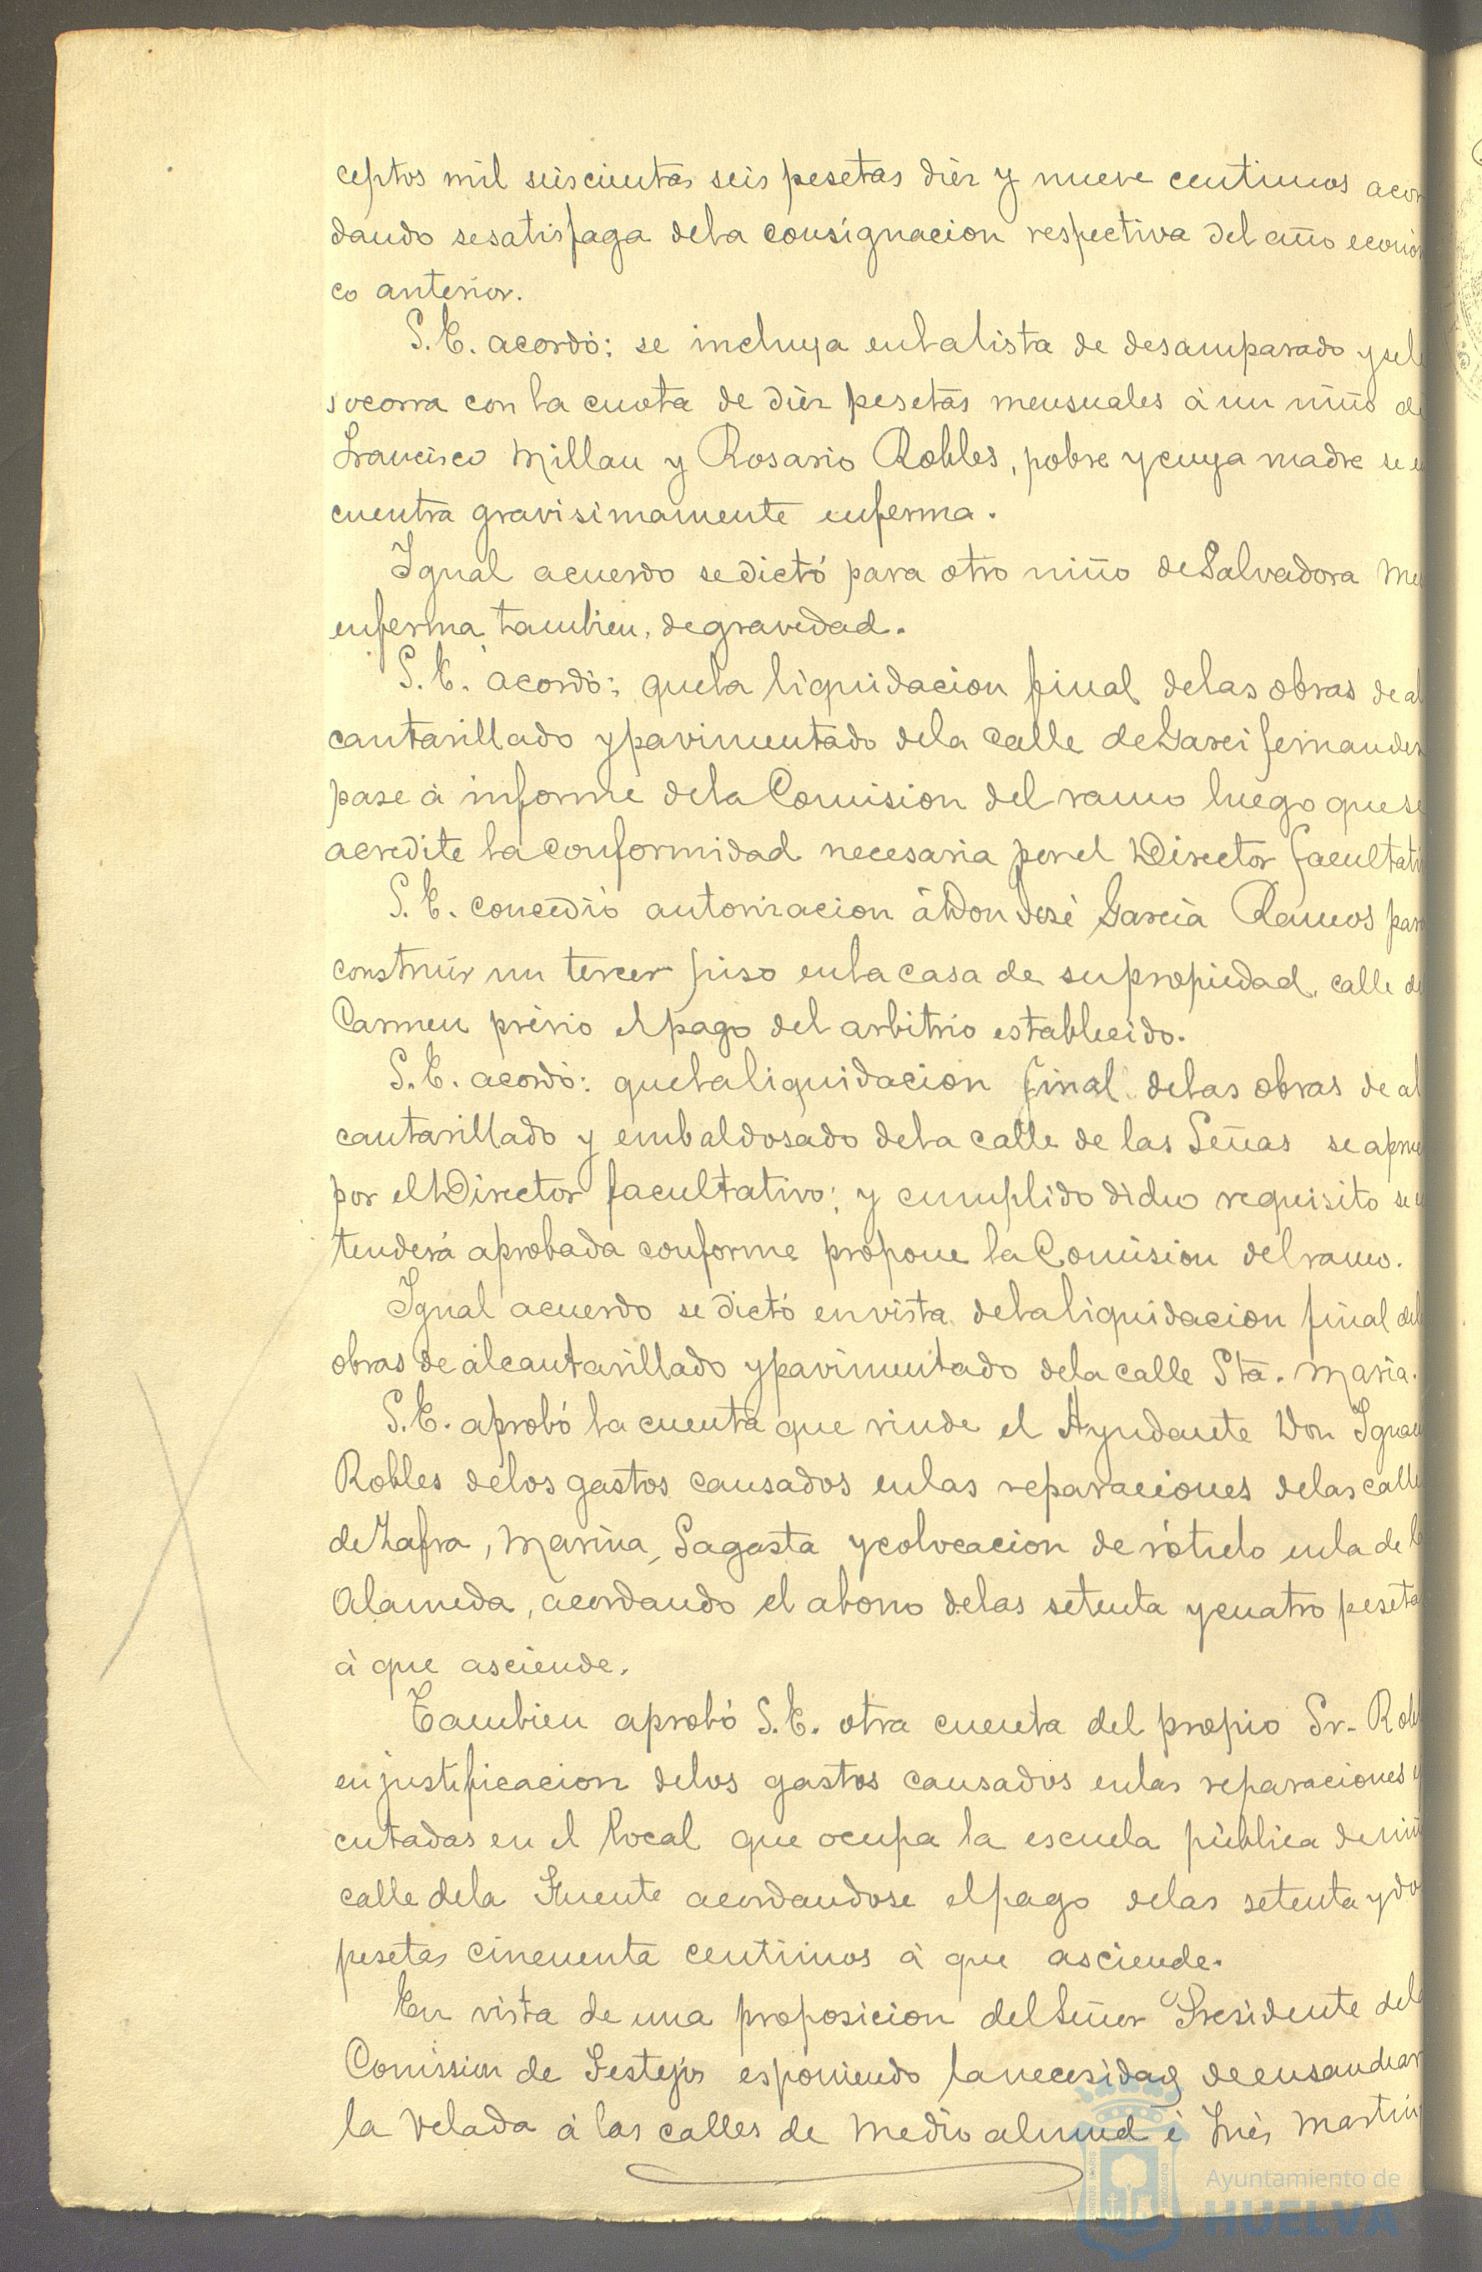 ceptos mil seiscientas seis pesetas diez y nueve centimos acor
dando se satisfaga de la consignacion respectiva del año económ
co anterior.
S. E. acordó: se incluya en la lista de desamparado y se le
socorra con la cuota de diez pesetas mensuales á un niño de
Francisco Millan y Rosario Robles, pobre y cuya madre se en
cuentra gravisimamente enferma.
Igual acuerdo se dictó para otro niño de Salvadora
enferma tambien, de gravedad.
S. E. acordó: que la liquidacion final de las obras de al
cantarillado y pavimentado de la calle de Garci fernandez
pase á informe de la Comision del ramo luego que se
acredite la conformidad necesaria por el Director facultati
S. E. concedió autorizacion á Don José García Ramos para
construir un tercer piso en la casa de su propiedad, calle del
Carmen prévio el pago del arbitrio establecido.
S. E. acordó: que la liquidacion final de las obras de al
cantarillado y embaldosado de la calle de las Señas se aprue
por el Director facultativo; y cumplido dicho requisito se en
tenderá aprobada conforme propone la Comision del ramo.
Igual acuerdo se dictó en vista de la liquidacion final de l
obras de alcantarillado y pavimentado de la calle Sta. Maria.
S. E. aprobó la cuenta que rinde el Ayudante Don Ignac
Robles de los gastos causados en las reparaciones de las calle
de Zafra, Marina, Sagasta y colocacion de rótulo en la de la
Alameda, acordando el abono de las setenta y cuatro peseta
á que asciende.
Tambien aprobó S. E. otra cuenta del propio Sr. Robl
en justificacion de los gastos causados en las reparaciones ej
cutadas en el local que ocupa la escuela pública de niñ
calle de la Fuente acordandose el pago de las setenta y do
pesetas cincuenta centimos á que asciende.
En vista de una proposicion del Señor Presidente de l
Comision de Festejos esponiendo la necesidad de ensanchar
la Velada á las calles de Medio almud é Inés Martin
Ayuntamiento de
HUELVA